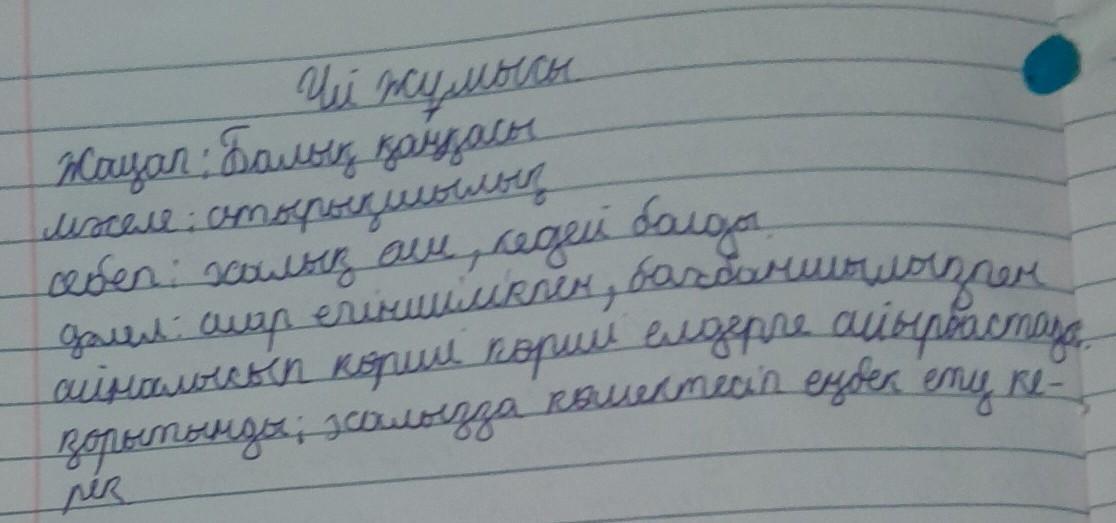 Үй жұмысы
Жауап: Балық қаңқасы
мәселе: отырықшылық
себеп: халық аш, кедей болды.
дәлел: олар егіншілікпен, бағбаншылықпен
айналысып көрші көрші елдерге айырбастады.
қорытынды: халыққа көмектесіп еңбек ету ке-
рек